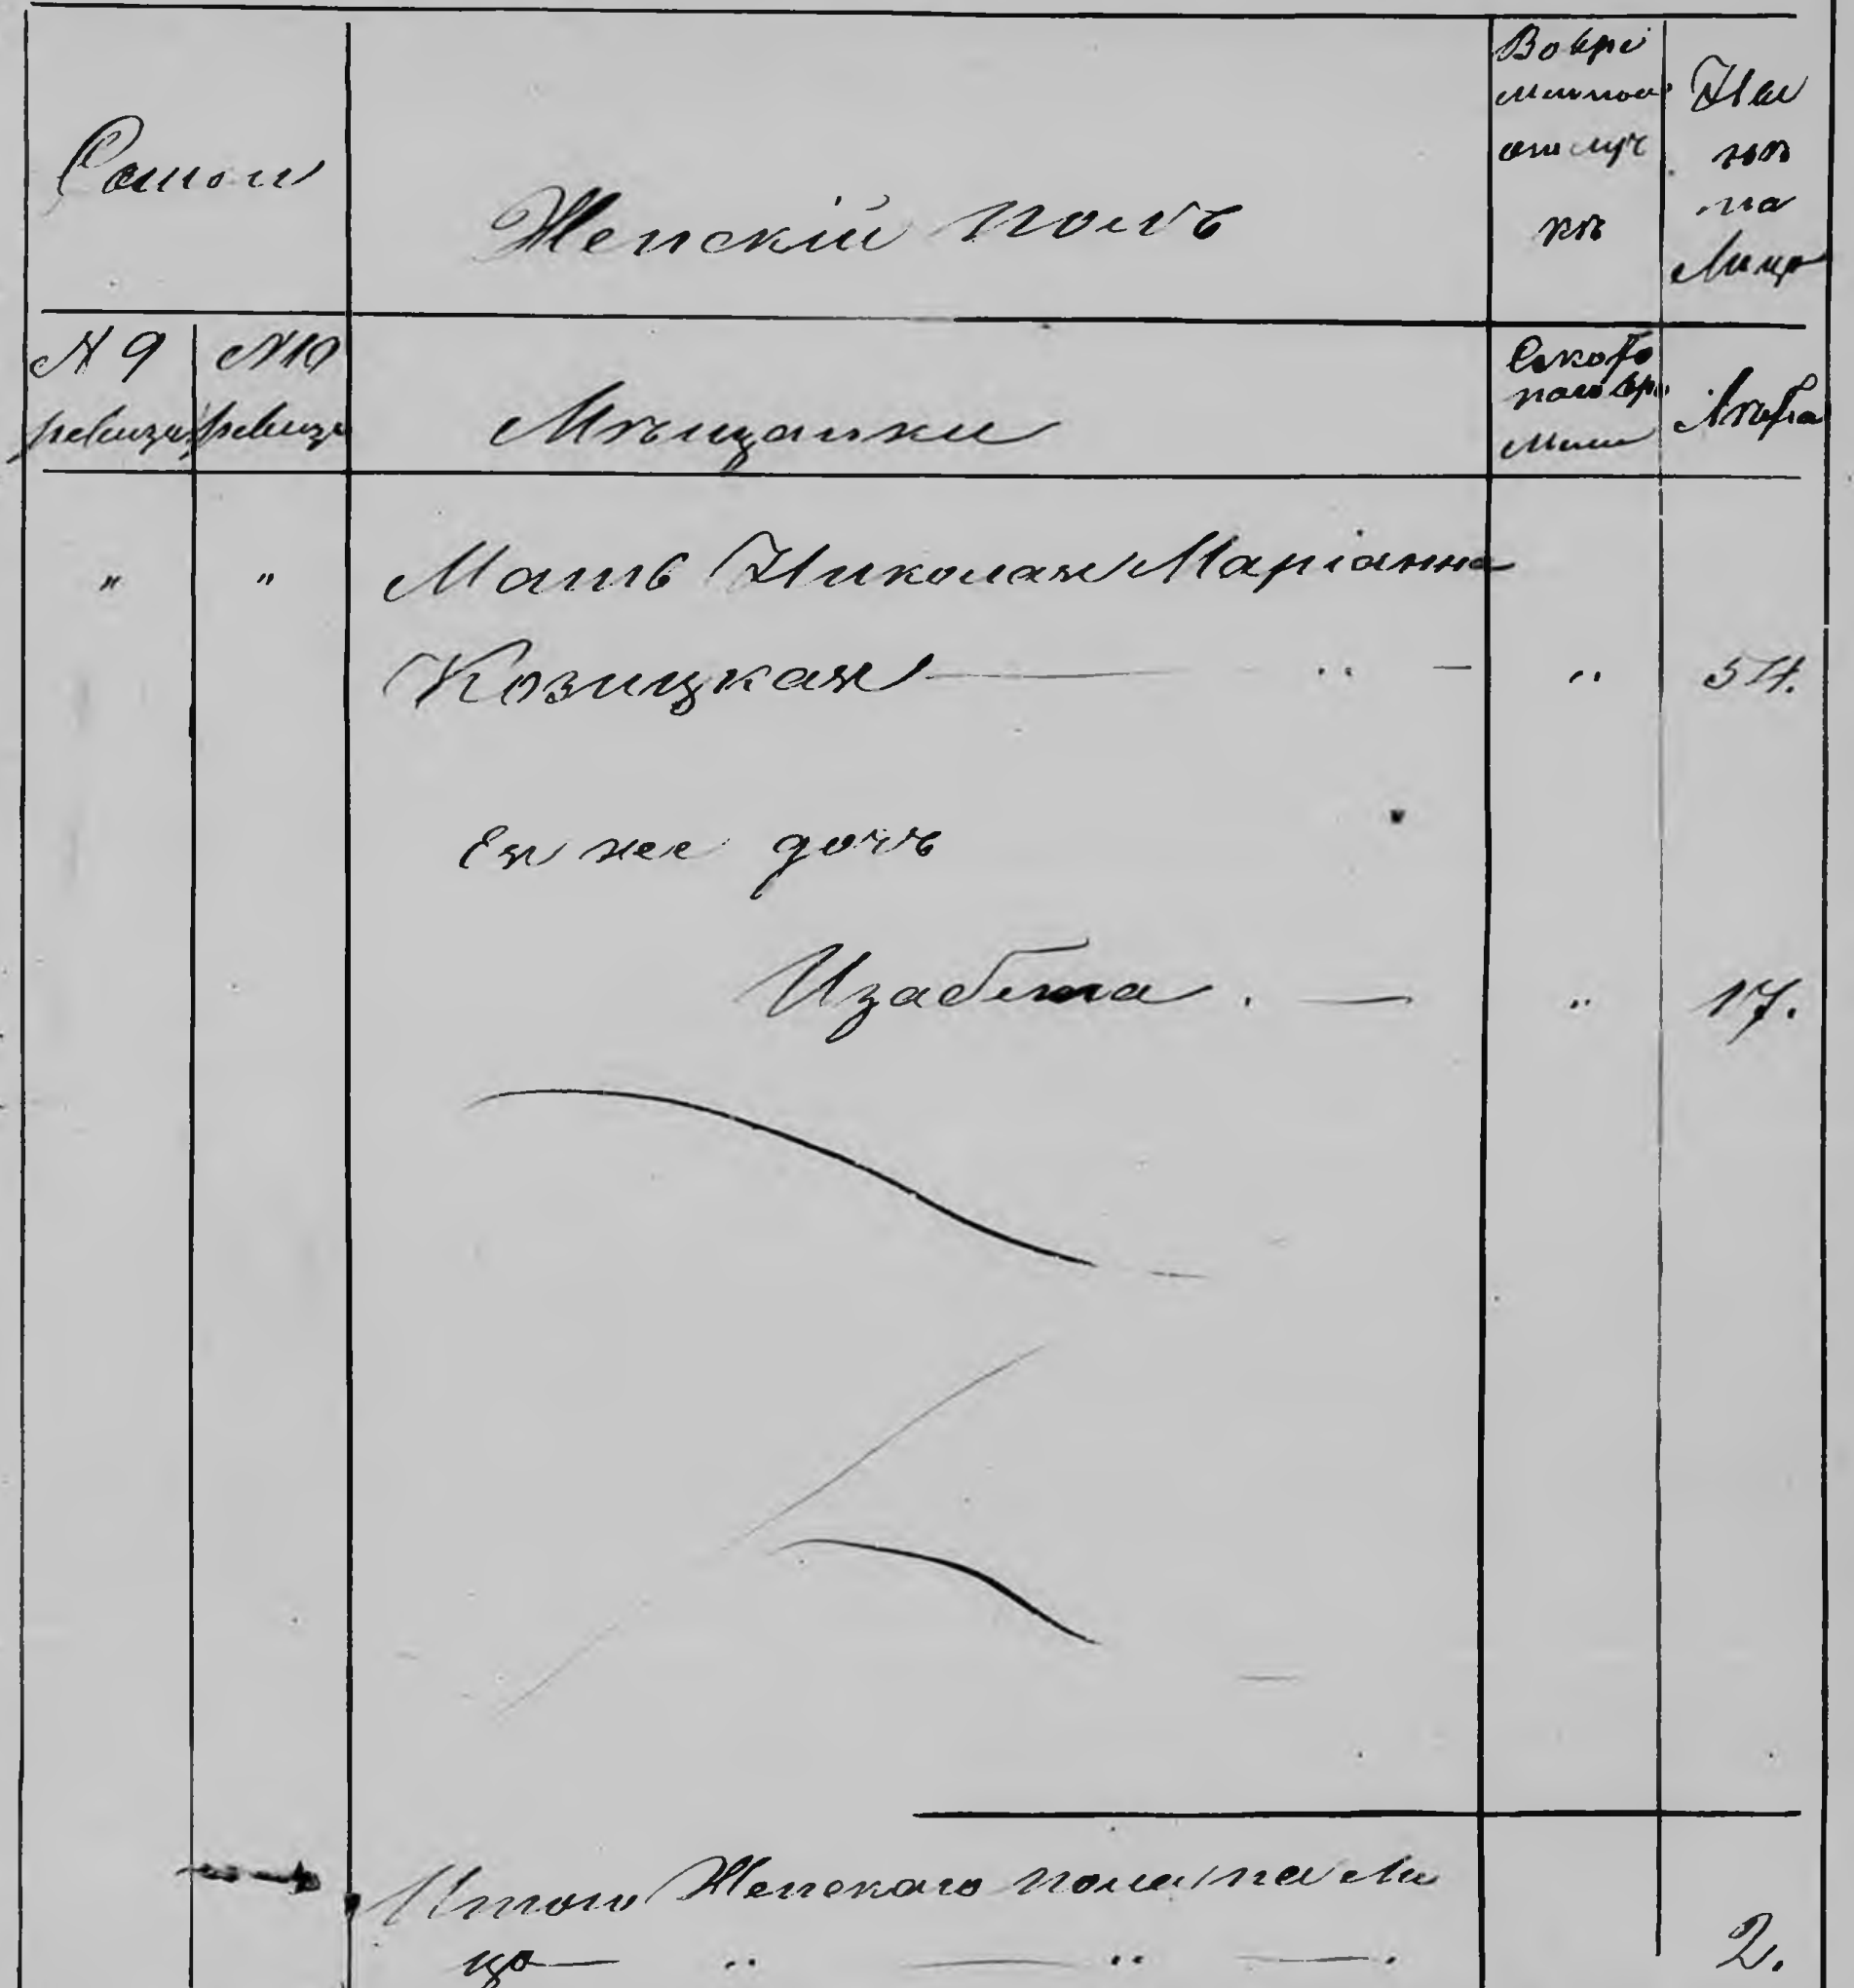 Семьи
Женскій полъ
Во вре
менной
отлуч
кѣ
Ны
нѣ
на
Лицо
№ 9
ревизіи
№ 10
ревизіи
Мѣщанки
Съ кото
раго вре
мени
Лѣта
" " Мать Николая Маріанна
Козицкая — " — " 54.
Ея же дочь
Изабела . — " 17.
Итого Женскаго пола на Ли
цо — " — " — . 2.